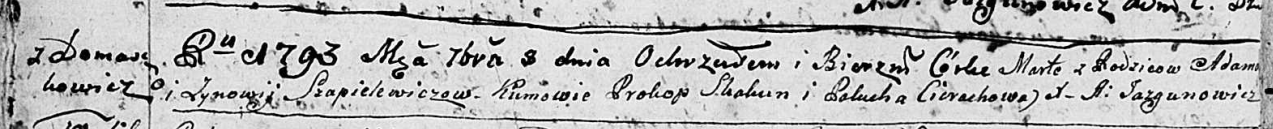 z Domasz
kowicz
Ru 1793 Mcа 7bra 8 dnia Ochrzciłem i Bierzm Córke Marte z Rodzicow Adama
i Zynowij Szapielewiczow. Kumowie Prokop Skakun i Palucha Cierachowa) X. A: Jazgunowicz